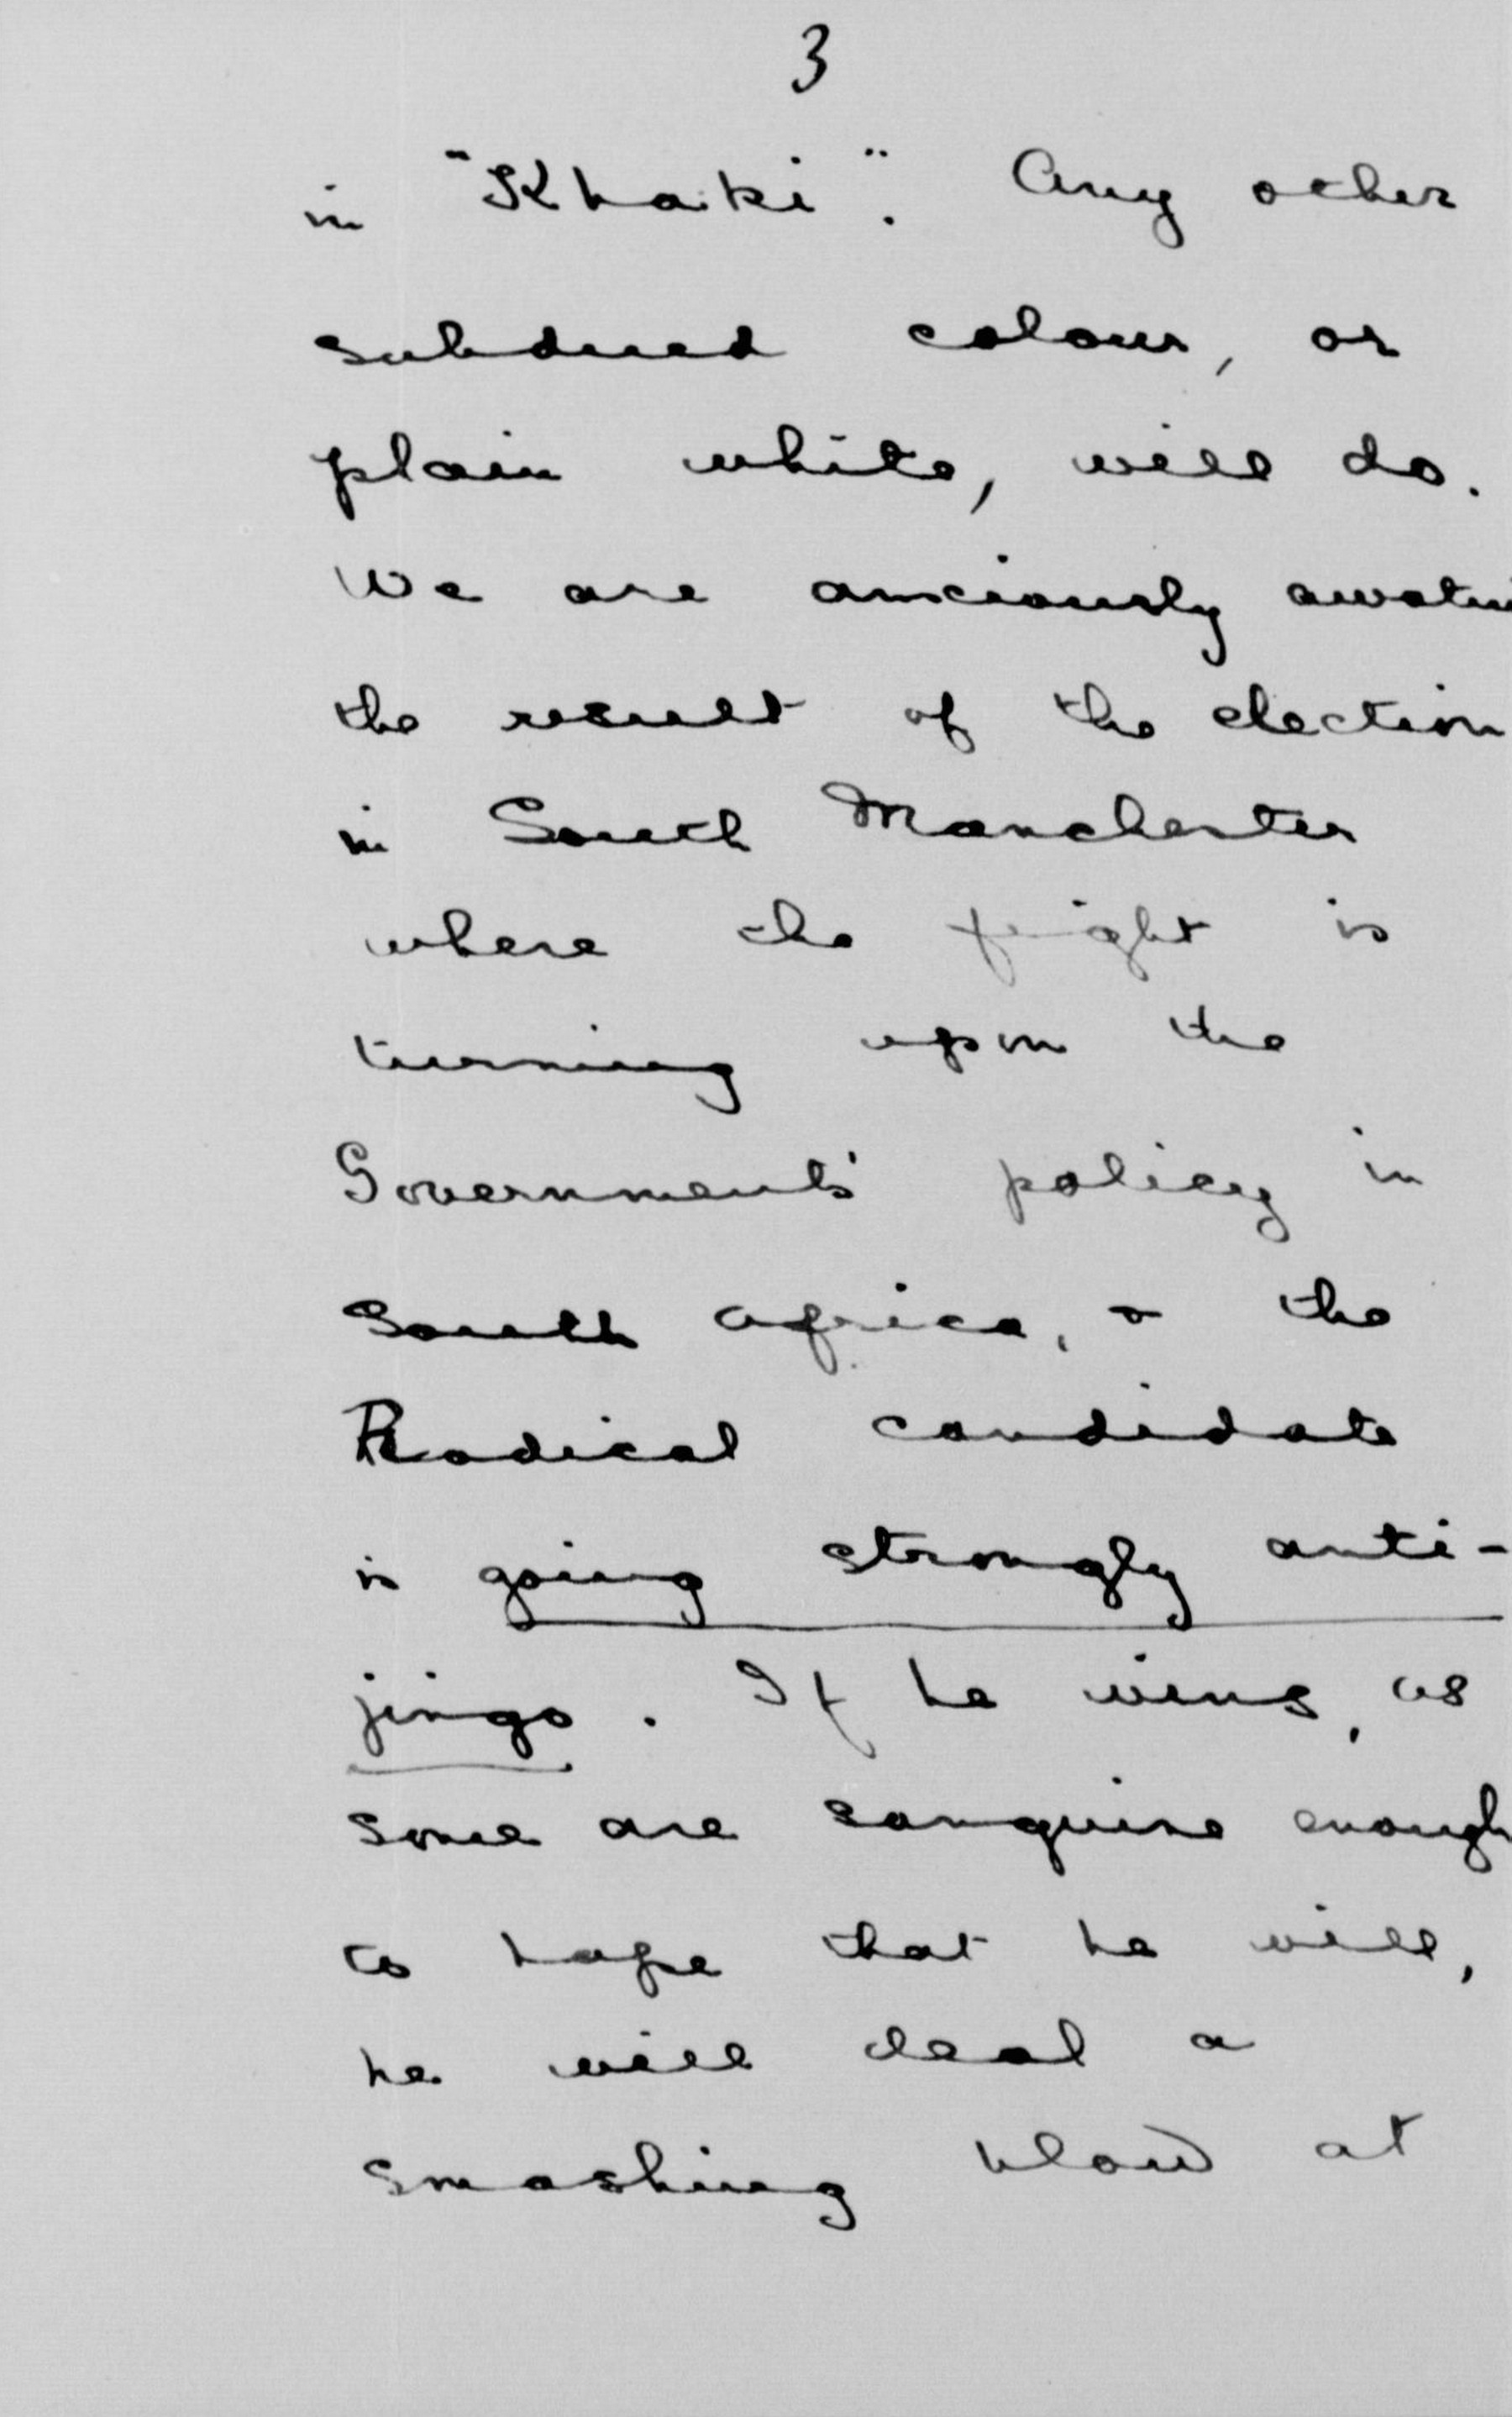 3
in "Khaki". Any other
subdued colour, or
plain white, will do.
We are anxiously awaitin
the result of the election
in South Manchester
where the fight is
turning upon the
Government's policy in
South Africa, & the
Radical candidate
is going strongly anti-
jingo. If he wins, as
some are sanguine enough
to hope that he will,
he will deal a
smashing blow at